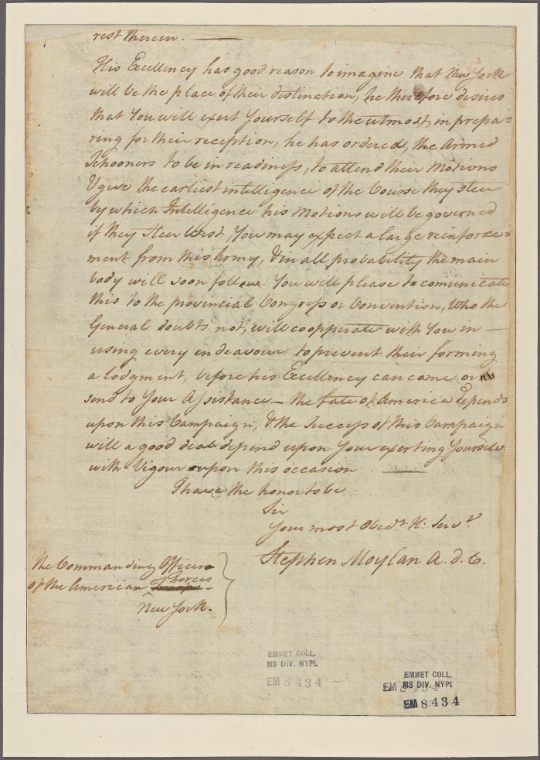 rest therein.
His Excellency has good reason to imagine that New York
will be the place of their distination, he therefore desires
that You will exert Yourself to the utmost, in prepa=
ring for their reception, he has ordered, the Armed
Schooners to be in readiness, to attend their Motions
& give the earliest intelligence of the Course they steer
by which Intelligence his Motions will be governed
if they steer West, You may expect a large reinforce=
ment from this Army, & in all probability the main
body will soon follow. You will please to comunicate
this to the provincial Congress or Convention, Who the
General doubts not, will cooperate with You in
using every endeavour to prevent their forming
a lodgment, before his Excellency can come or
send to Your Assistance — the fate of America depends
upon this Campaign, & the Success of this Campaign
will a good deal depend upon Your exerting Yourselves
with Vigour upon this occasion
I have the honor to be
Sir
Your most Obedt. H: Servt.
Stephen Moylan A. D. C.
The Commanding Officer
of the American Forces
New York.
EMMET COLL.
MS DIV. NYPL
EM 8434
EMMET COLL.
MS DIV. NYPL
EM 8434